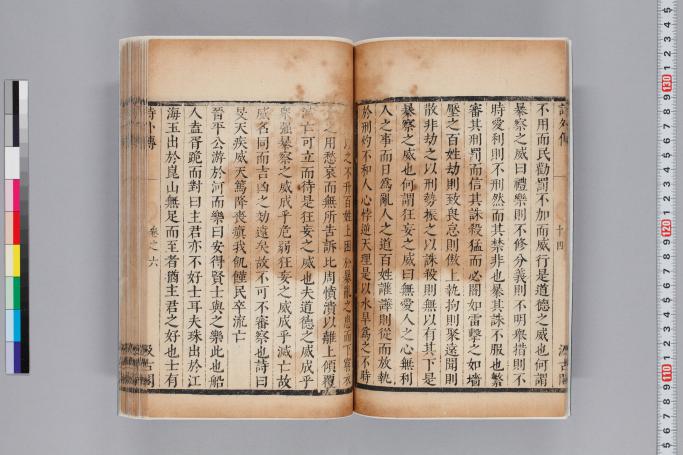 詩外傳
十四
汲古閣
不用而民勸罰不加而威行是道德之威也何謂
暴察之威曰禮樂則不修分義則不明舉措則不
時愛利則不刑然而其禁非也暴其誅不服也繁
審其刑罰而信其誅殺猛而必闇如雷擊之如墻
壓之百姓劫則致畏怠則傲上執拘則聚遠聞則
散非劫之以刑勢振之以誅殺則無以有其下是
暴察之威也何謂狂妄之威曰無愛人之心無利
人之事而日爲亂人之道百姓讙譁則從而放執
於刑灼不和人心悖逆天理是以水旱爲之不時
以之不升百姓上困於暴亂之患而下窮衣
之用愁哀而無所告訴比周憤潰以離上傾覆
滅亡可立而待是狂妄之威也夫道德之威成乎
衆强暴察之威成乎危弱狂妄之威成乎滅亡故
威名同而吉凶之効遠矣故不可不審察也詩曰
旻天疾威天篤降喪瘨我飢饉民卒流亡
晉平公游於河而樂曰安得賢士與之樂此也船
人盍胥跪而對曰主君亦不好士耳夫珠出於江
海玉出於崑山無足而至者猶主君之好也士有
詩外傳
卷之六
汲古閣